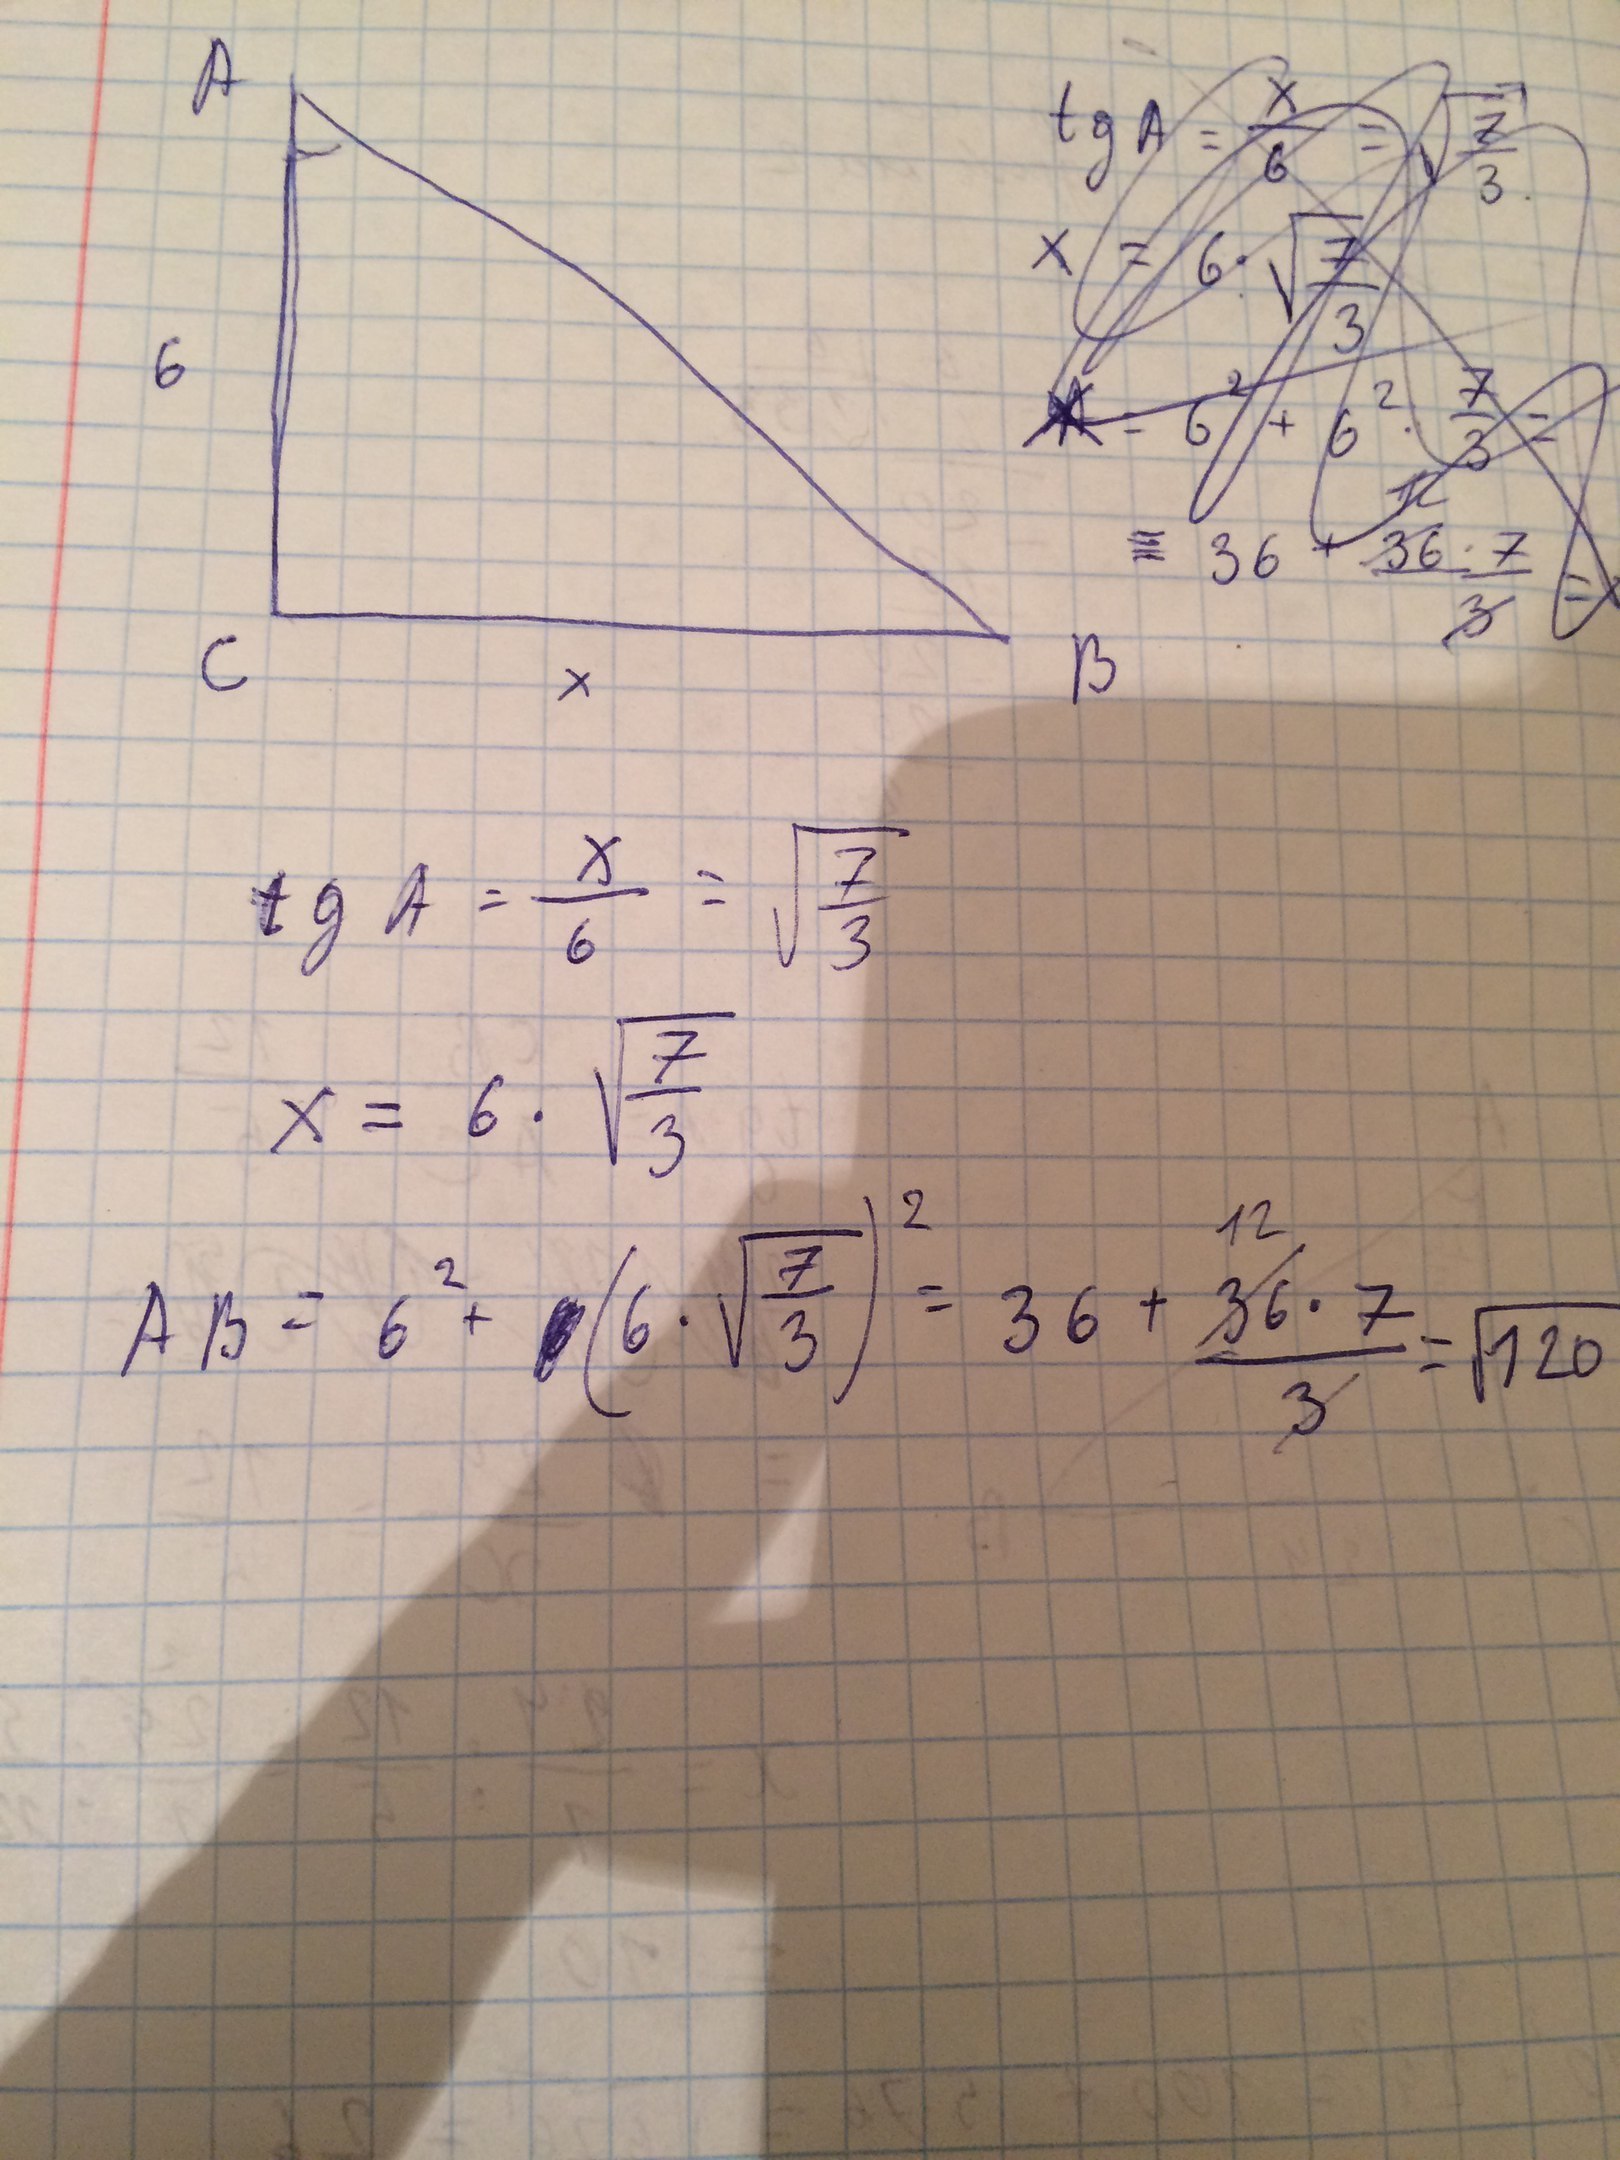 A
6
C
x
B
tg A = x/6 = √(7/3)
x = 6 · √(7/3)
= 6² + 6² · 7/3 =
= 36 + 36 · 7/3 =
12
tg A = x/6 = √(7/3)
x = 6 · √(7/3)
12
AB = 6² + (6 · √(7/3))² = 36 + 36 · 7/3 = √120